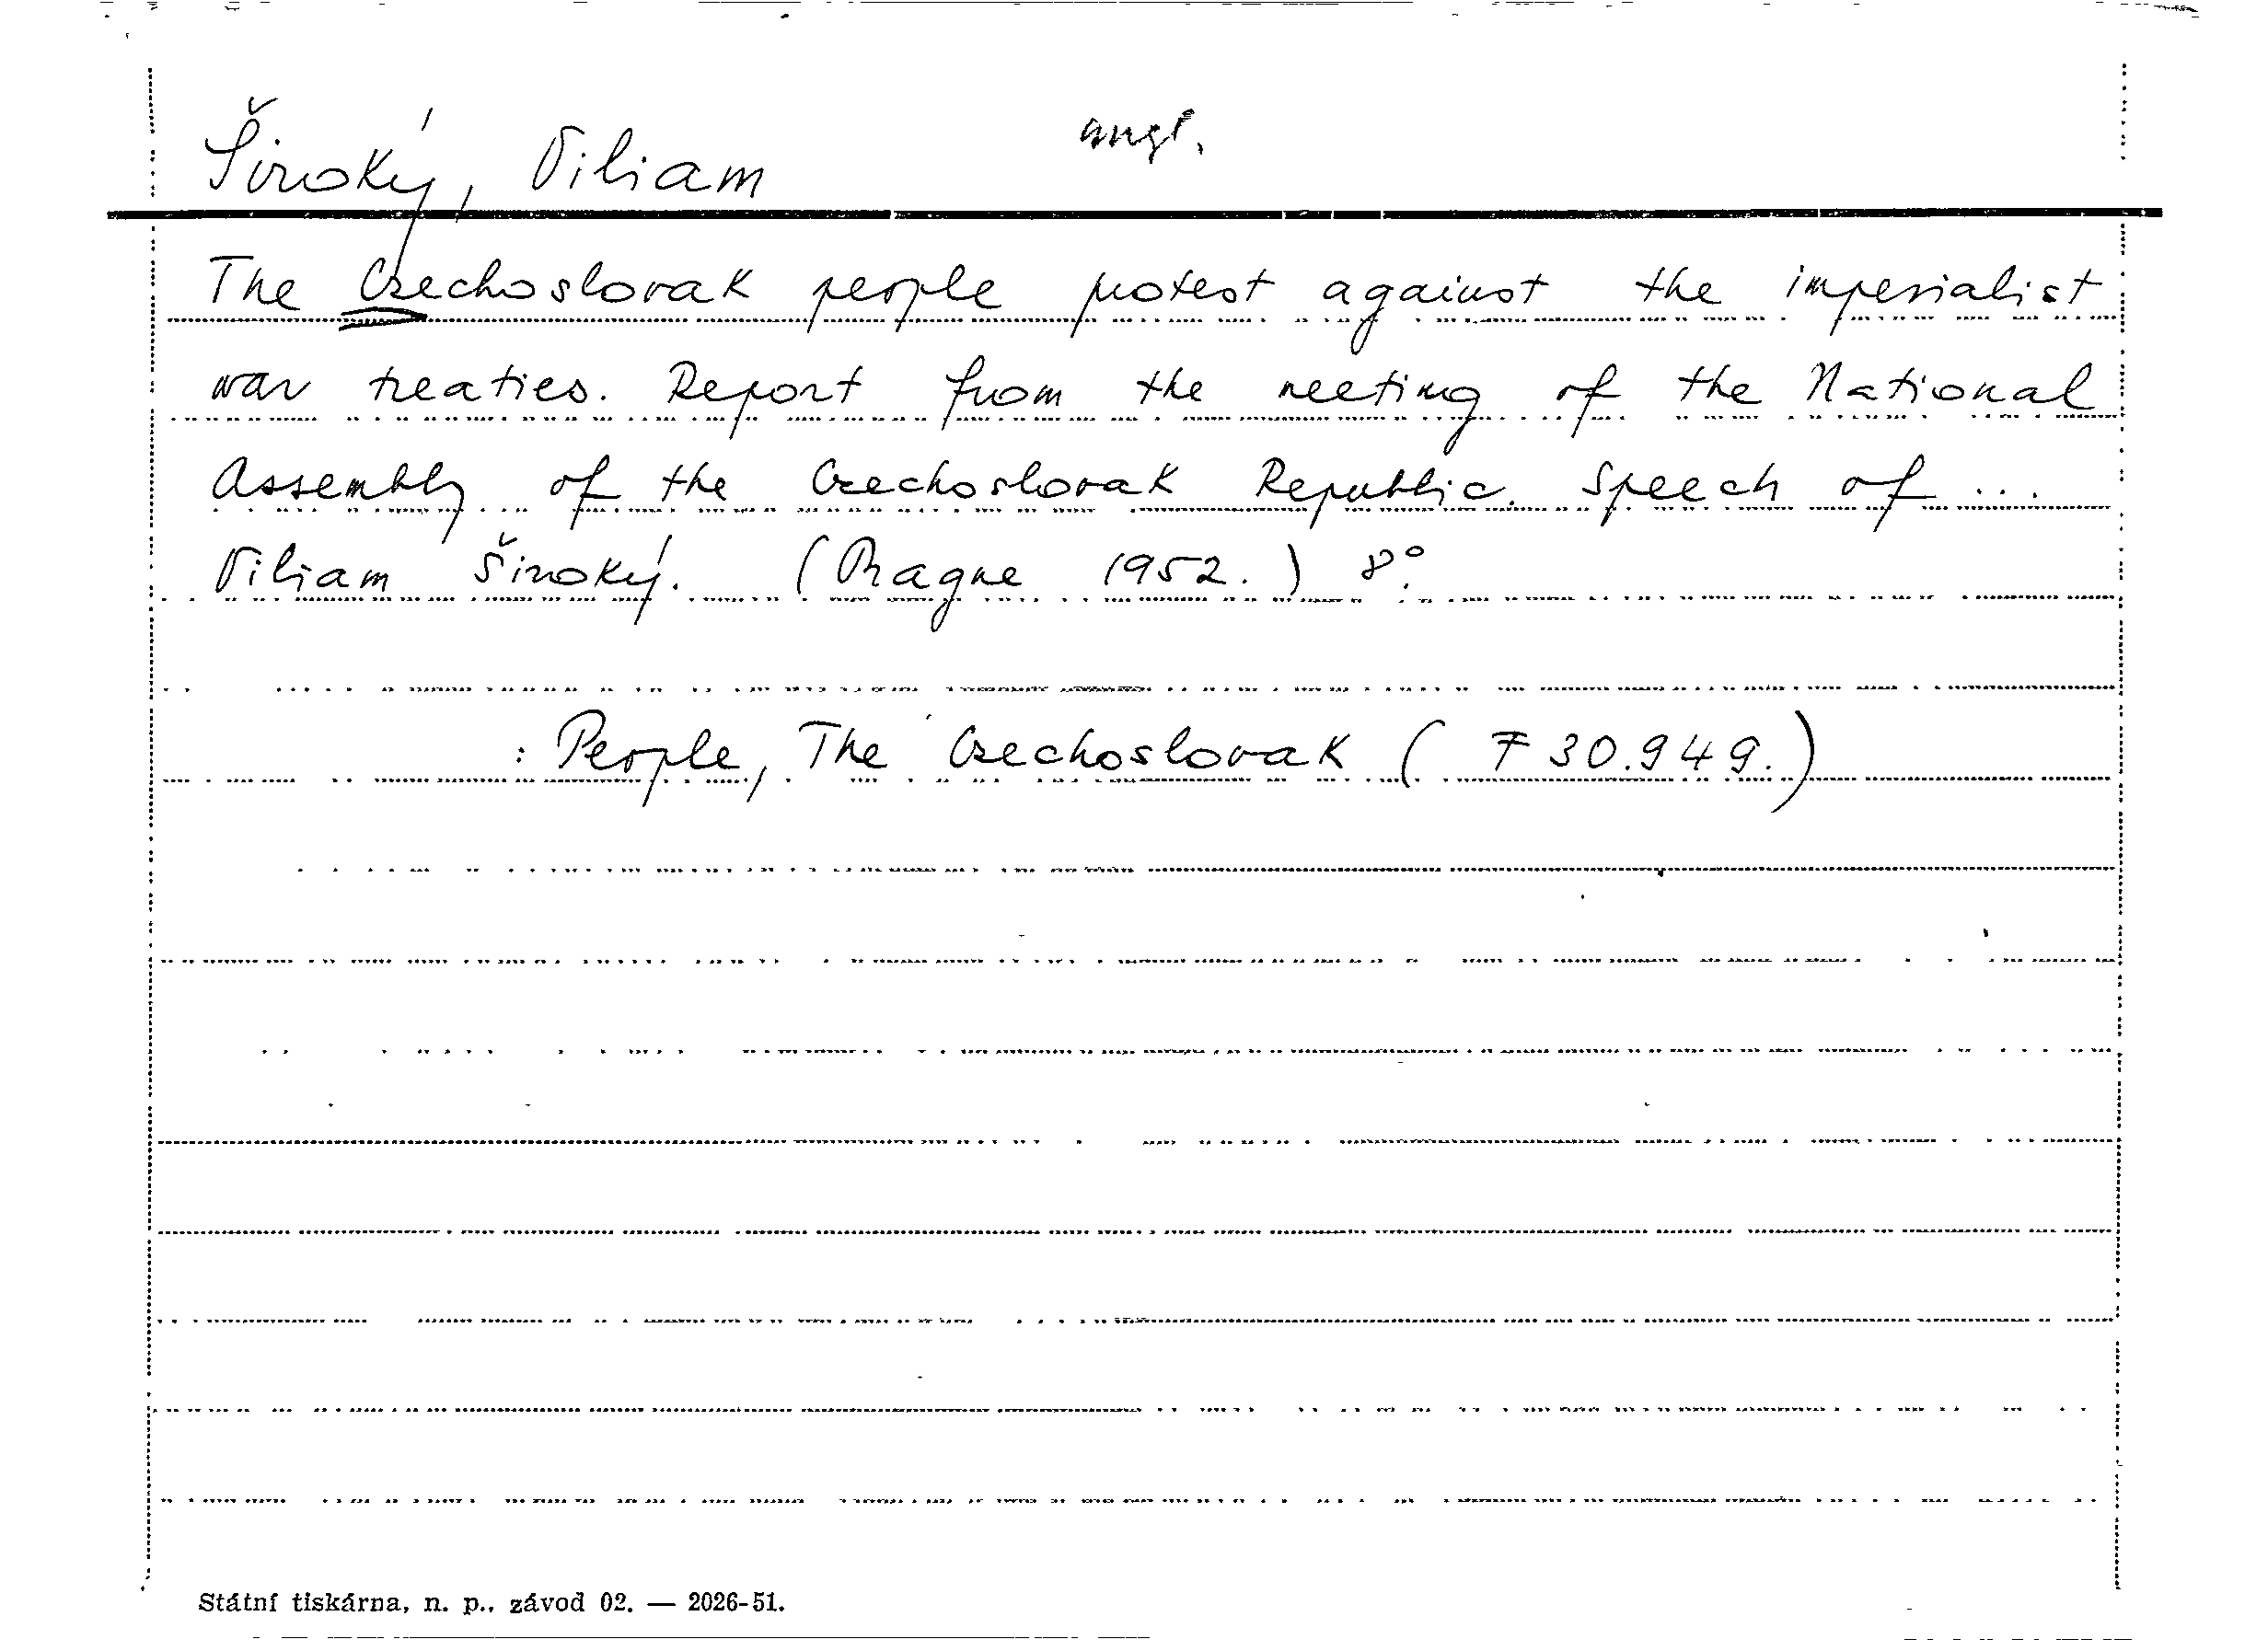 Široký, Viliam angl.
The Czechoslovak people protest against the imperialist
war treaties. Report from the meeting of the National
Assembly of the Czechoslovak Republic. Speech of ...
Viliam Široký. (Prague 1952.) 8°.
: People, The Czechoslovak ( F 30.949.)
Státní tiskárna, n. p., závod 02. — 2026-51.